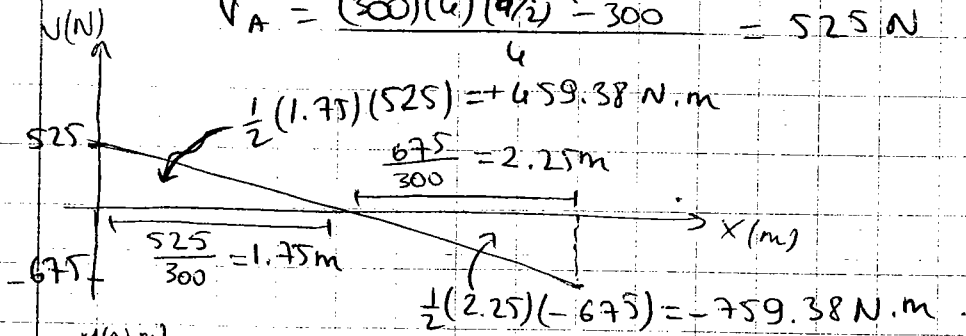 V(N)
V_A = (300)(4)(4/2) - 300 / 4 = 525 N
1/2 (1.75)(525) = +459.38 N.m
525
675/300 = 2.25m
X(m)
525/300 = 1.75m
-675
1/2 (2.25)(-675) = -759.38 N.m